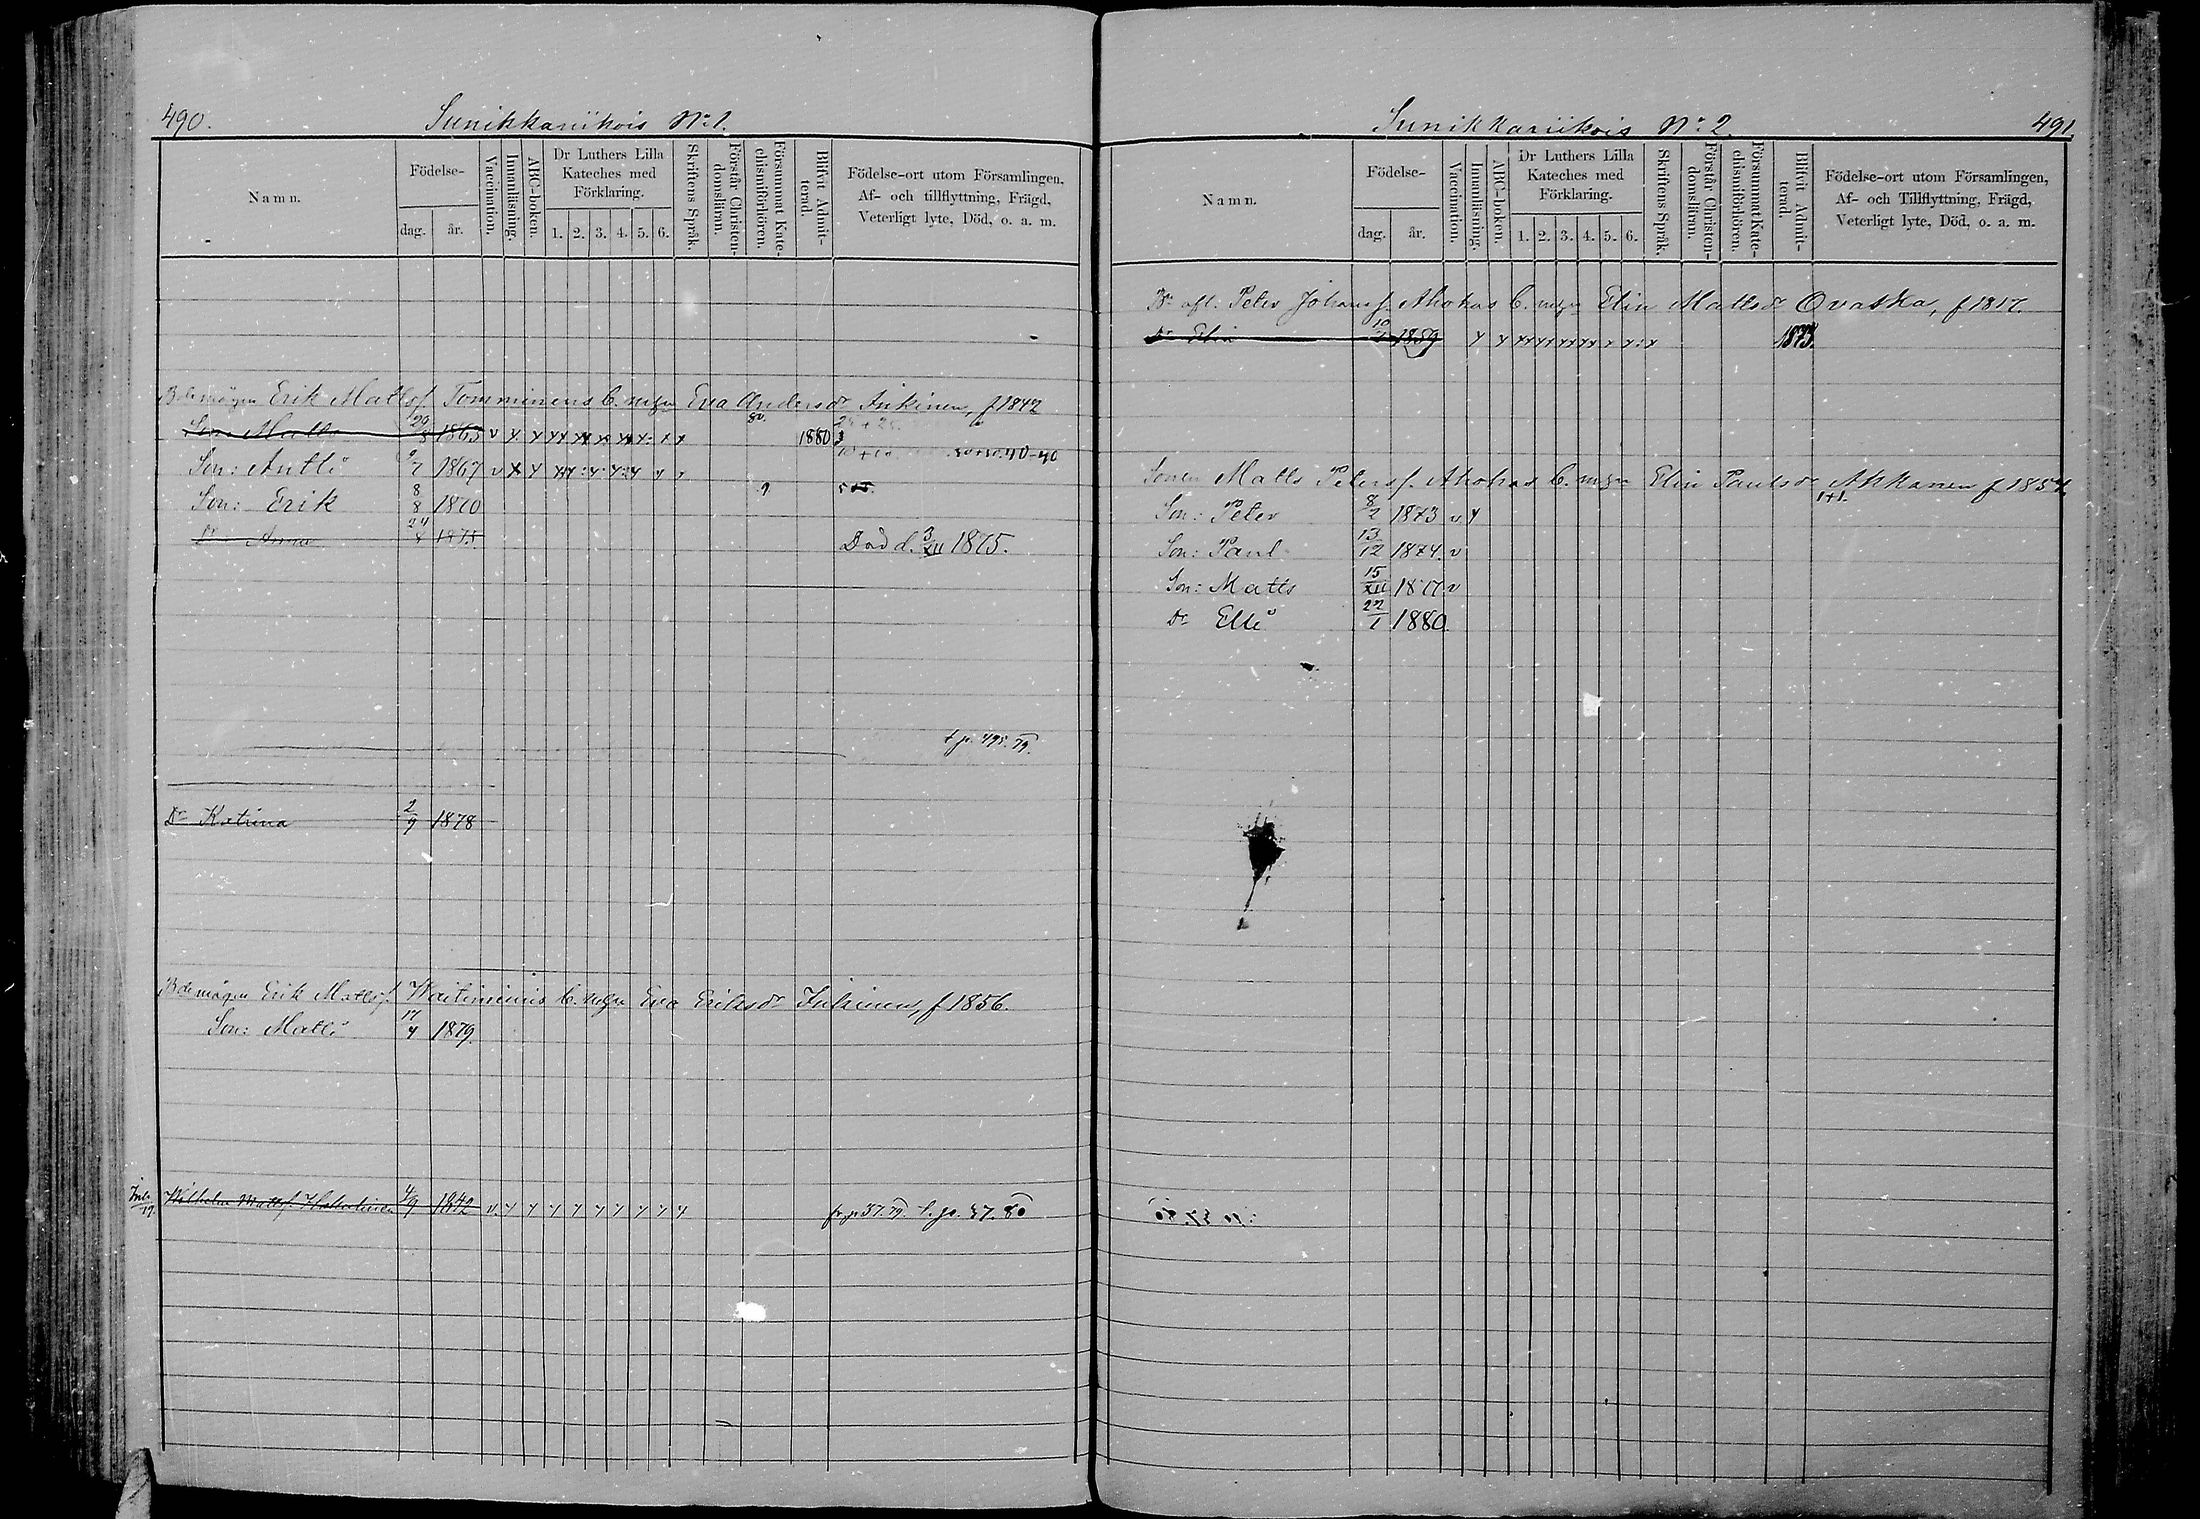 490.
Sunikkariikois No 1.
Namn.
Födelse-
dag.
år.
Vaccination.
Innanläsning.
ABC-boken.
Dr Luthers Lilla Kateches med Förklaring.
1. 2. 3. 4. 5. 6.
Skriftens Språk.
Förstår Christendomsläran.
Försummat Katechismiförhören.
Blifvit Admitterad.
Födelse-ort utom Församlingen, Af- och tillflyttning, Frägd, Veterligt lyte, Död, o. a. m.
Erik Matsf. Tomminens b. Eva Andersdr Inkinen, f 1842
Son: Matts 29/8 1863 1880
Son: Antti 1867
Son: Erik 8/8 1870
Dr Anna 24/8 1875 Död d. 3/XII 1875.
t. p. 495. 79.
Dr Katrina 2/9 1878
Erik Mattsf. b. Eva Eriksdr Inkinen, f 1856.
Son: Matti 17/4 1879.
Wilhelm Mattsf. 4/9 1842 fr. p 37. 79. t. p. 37. 80
Sunikkariikois No 2.
491.
Namn.
Födelse-
dag.
år.
Vaccination.
Innanläsning.
ABC-boken.
Dr Luthers Lilla Kateches med Förklaring.
1. 2. 3. 4. 5. 6.
Skriftens Språk.
Förstår Christendomsläran.
Försummat Katechismiförhören.
Blifvit Admitterad.
Födelse-ort utom Församlingen, Af- och Tillflyttning, Frägd, Veterligt lyte, Död, o. a. m.
afl. Peter Johansf. Ahokas b. Elin Mattsdr Ovaska, f 1817.
Dr Elin 1859 1873.
Sonen Matts Petersf. Ahokas b. Elin Paulsdr Akkanen f 1854.
Son: Peter 8/2 1873 v
Son: Paul 13/12 1874. v
Son: Matts 15/XII 1877 v
Dr Elli 22/1 1880.